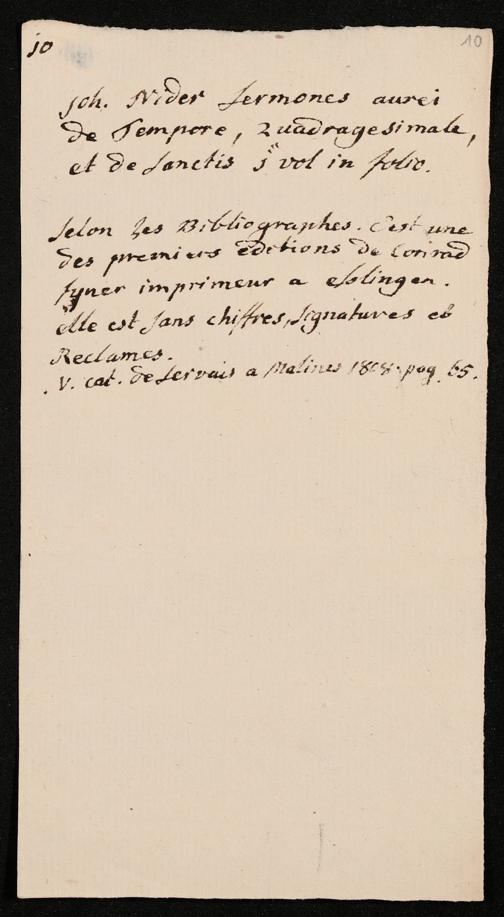 10
10
Joh. Nider Sermones aurei
de Tempore, Quadragesimale,
et de Sanctis vol in folio.
Selon Les Bibliographes. C'est une
des premiers éditions de Conrad
fyner imprimeur a Esslingen.
elle est sans chiffres, signatures et
Reclames.
V. cat. de Servais a Malines 1808. pag. 65.